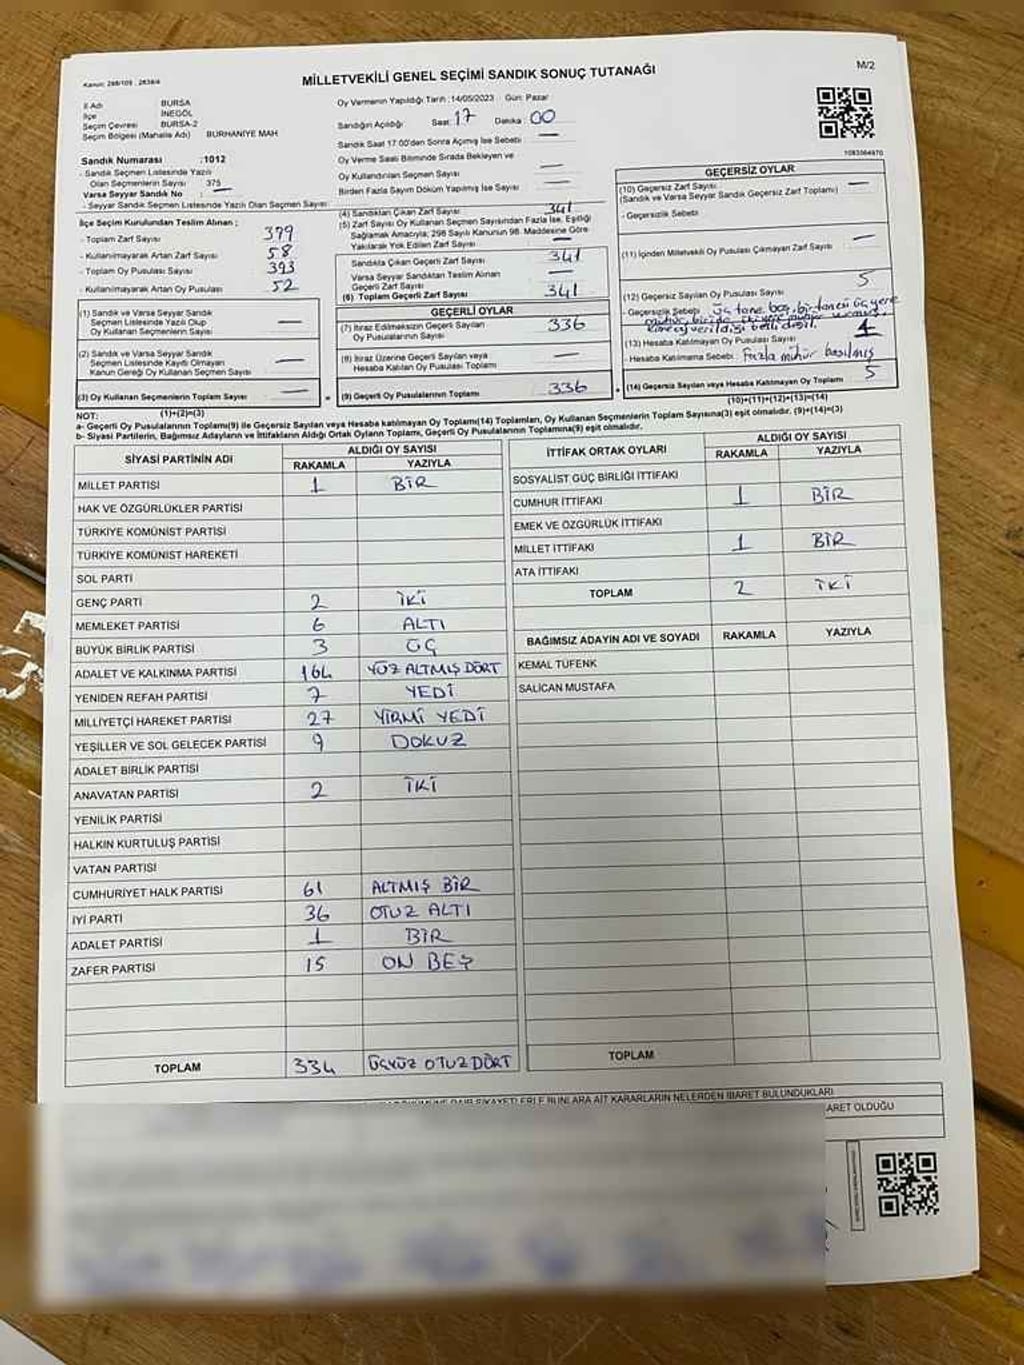 Kanun: 298/105 , 2839/4
MİLLETVEKİLİ GENEL SEÇİMİ SANDIK SONUÇ TUTANAĞI
M/2
İl Adı BURSA
İlçe İNEGÖL
Seçim Çevresi BURSA-2
Seçim Bölgesi (Mahalle Adı) BURHANİYE MAH
Sandık Numarası :1012
- Sandık Seçmen Listesinde Yazılı
Olan Seçmenlerin Sayısı 375
Varsa Seyyar Sandık No : —
- Seyyar Sandık Seçmen Listesinde Yazılı Olan Seçmen Sayısı
İlçe Seçim Kurulundan Teslim Alınan ;
- Toplam Zarf Sayısı 399
- Kullanılmayarak Artan Zarf Sayısı 58
- Toplam Oy Pusulası Sayısı 393
- Kullanılmayarak Artan Oy Pusulası 52
(1) Sandık ve Varsa Seyyar Sandık
Seçmen Listesinde Yazılı Olup
Oy Kullanan Seçmenlerin Sayısı —
(2) Sandık ve Varsa Seyyar Sandık
Seçmen Listesinde Kayıtlı Olmayan
Kanun Gereği Oy Kullanan Seçmen Sayısı —
(3) Oy Kullanan Seçmenlerin Toplam Sayısı —
(1)+(2)=(3)
Oy Vermenin Yapıldığı Tarih :14/05/2023 Gün: Pazar
Sandığın Açıldığı Saat 17 Dakika 00
Sandık Saat 17.00'den Sonra Açılmış İse Sebebi —
Oy Verme Saati Bitiminde Sırada Bekleyen ve
Oy Kullandırılan Seçmen Sayısı —
Birden Fazla Sayım Döküm Yapılmış İse Sayısı —
(4) Sandıktan Çıkan Zarf Sayısı 341
(5) Zarf Sayısı Oy Kullanan Seçmen Sayısından Fazla İse, Eşitliği
Sağlamak Amacıyla; 298 Sayılı Kanunun 98. Maddesine Göre
Yakılarak Yok Edilen Zarf Sayısı —
Sandıkta Çıkan Geçerli Zarf Sayısı 341
Varsa Seyyar Sandıktan Teslim Alınan
Geçerli Zarf Sayısı —
(6) Toplam Geçerli Zarf Sayısı 341
GEÇERLİ OYLAR
(7) İtiraz Edilmeksizin Geçerli Sayılan
Oy Pusulalarının Sayısı 336
(8) İtiraz Üzerine Geçerli Sayılan veya
Hesaba Katılan Oy Pusulası Toplamı —
(9) Geçerli Oy Pusulalarının Toplamı 336
1083564970
GEÇERSİZ OYLAR
(10) Geçersiz Zarf Sayısı —
(Sandık ve Varsa Seyyar Sandık Geçersiz Zarf Toplamı)
- Geçersizlik Sebebi
(11) İçinden Milletvekili Oy Pusulası Çıkmayan Zarf Sayısı —
(12) Geçersiz Sayılan Oy Pusulası Sayısı 5
- Geçersizlik Sebebi üç tane boş, bir tanesi üç yere
verildiği belli değil.
(13) Hesaba Katılmayan Oy Pusulası Sayısı
- Hesaba Katılmama Sebebi fazla mühür basılmış
(14) Geçersiz Sayılan veya Hesaba Katılmayan Oy Toplamı 5
(10)+(11)+(12)+(13)=(14)
NOT:
a- Geçerli Oy Pusulalarının Toplamı(9) ile Geçersiz Sayılan veya Hesaba katılmayan Oy Toplamı(14) Toplamları, Oy Kullanan Seçmenlerin Toplam Sayısına(3) eşit olmalıdır. (9)+(14)=(3)
b- Siyasi Partilerin, Bağımsız Adayların ve İttifakların Aldığı Ortak Oyların Toplamı, Geçerli Oy Pusulalarının Toplamına(9) eşit olmalıdır.
SİYASİ PARTİNİN ADI ALDIĞI OY SAYISI
RAKAMLA YAZIYLA
MİLLET PARTİSİ 1 BİR
HAK VE ÖZGÜRLÜKLER PARTİSİ
TÜRKİYE KOMÜNİST PARTİSİ
TÜRKİYE KOMÜNİST HAREKETİ
SOL PARTİ
GENÇ PARTİ 2 İKİ
MEMLEKET PARTİSİ 6 ALTI
BÜYÜK BİRLİK PARTİSİ 3 ÜÇ
ADALET VE KALKINMA PARTİSİ 164 YÜZ ALTMIŞ DÖRT
YENİDEN REFAH PARTİSİ 7 YEDİ
MİLLİYETÇİ HAREKET PARTİSİ 27 YİRMİ YEDİ
YEŞİLLER VE SOL GELECEK PARTİSİ 9 DOKUZ
ADALET BİRLİK PARTİSİ
ANAVATAN PARTİSİ 2 İKİ
YENİLİK PARTİSİ
HALKIN KURTULUŞ PARTİSİ
VATAN PARTİSİ
CUMHURİYET HALK PARTİSİ 61 ALTMIŞ BİR
İYİ PARTİ 36 OTUZ ALTI
ADALET PARTİSİ 1 BİR
ZAFER PARTİSİ 15 ON BEŞ
TOPLAM 334 ÜÇYÜZ OTUZ DÖRT
İTTİFAK ORTAK OYLARI ALDIĞI OY SAYISI
RAKAMLA YAZIYLA
SOSYALİST GÜÇ BİRLİĞİ İTTİFAKI
CUMHUR İTTİFAKI 1 BİR
EMEK VE ÖZGÜRLÜK İTTİFAKI
MİLLET İTTİFAKI 1 BİR
ATA İTTİFAKI
TOPLAM 2 İKİ
BAĞIMSIZ ADAYIN ADI VE SOYADI RAKAMLA YAZIYLA
KEMAL TÜFENK
SALİCAN MUSTAFA
TOPLAM
DAİR ŞİKAYETLERLE BUNLARA AİT KARARLARIN NELERDEN İBARET BULUNDUKLARI
ARET OLDUĞU